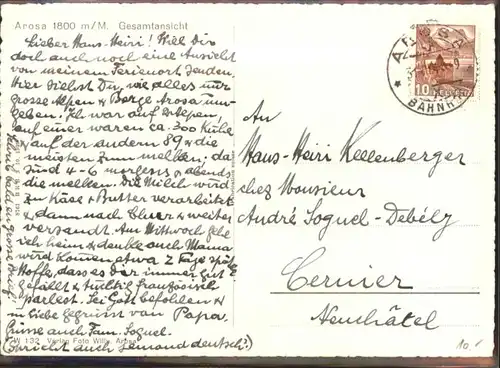 Arosa 1800 m/M. Gesamtansicht
Lieber Hans-Heiri! Will Dir
doch auch noch eine Ansicht
von meinem Ferienort senden.
Hier siehst Du, wie alles nur
grosse Alpen & Berge Arosa um-
geben! Ich war auf 2 Alpen,
auf einer waren ca. 300 Kühe
auf der andern 89 & die
meisten zum melken; da
sind 4-6 morgens & abends
die melken. Die Milch wird
zu Käse & Butter verarbeitet
& dann nach Chur & weiter
versandt. Am Mittwoch gehe
ich heim & denke auch Mama
wird kommen etwa 2 Tage spät.
Hoffe, dass es Dir immer gut
gefällt & tüchtig französisch
parlest. Sei Gott befohlen &
in Liebe gegrüsst von Papa.
Grüsse auch Fam. Soguel.
(Spricht auch jemand deutsch?)
Schreib bald
W 132 Verlag Foto Willy, Arosa
AROSA
BAHNHOF
10
HELVETIA
An
Hans-Heiri Kellenberger
chez Monsieur
André Soguel-Debély
Cernier
Neuchâtel
10.-